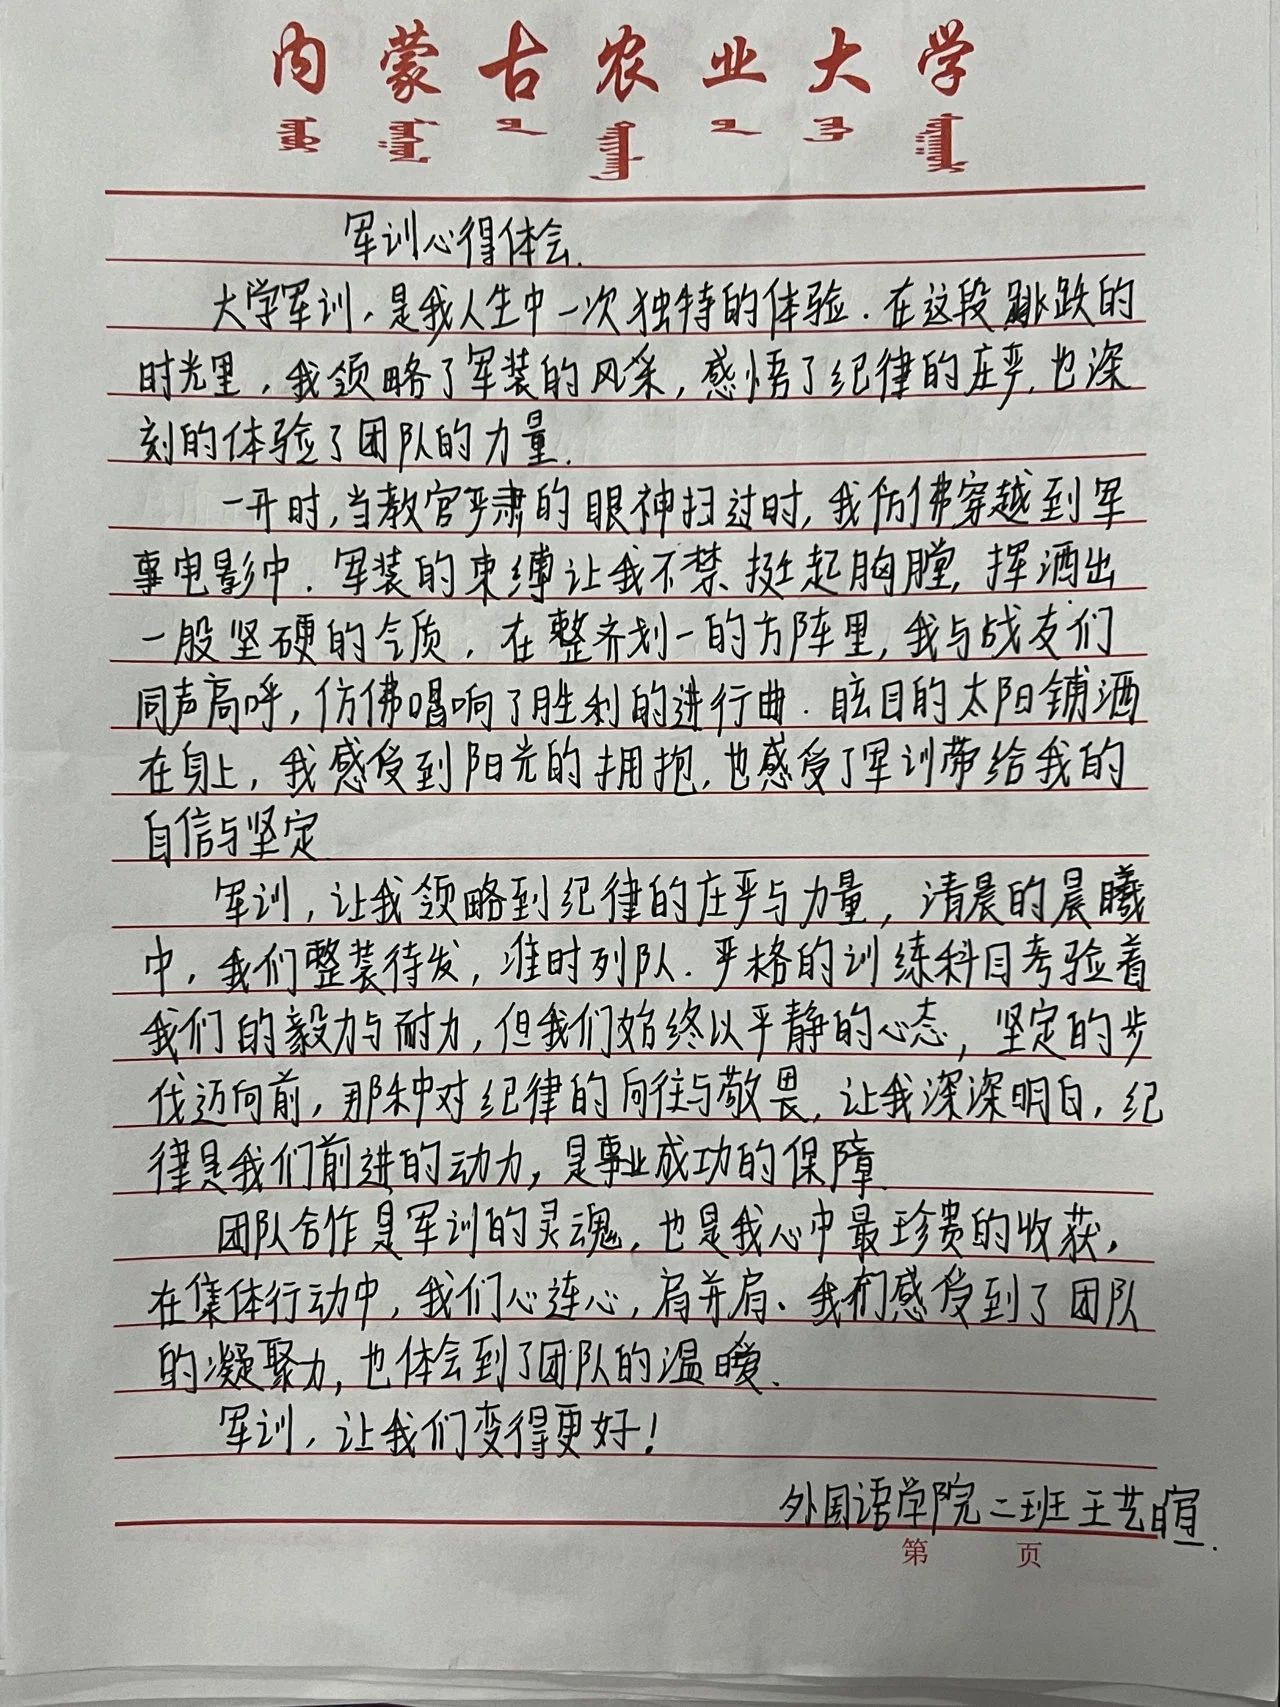 内蒙古农业大学
军训心得体会.
大学军训，是我人生中一次独特的体验.在这段跳跌的
时光里，我领略了军装的风采，感悟了纪律的庄严，也深
刻的体验了团队的力量.
一开时，当教官严肃的眼神扫过时，我仿佛穿越到军
事电影中.军装的束缚让我不禁挺起胸膛，挥洒出
一股坚硬的气质，在整齐划一的方阵里，我与战友们
同声高呼，仿佛唱响了胜利的进行曲.眩目的太阳铺洒
在身上，我感受到阳光的拥抱，也感受了军训带给我的
自信与坚定.
军训，让我领略到纪律的庄严与力量，清晨的晨曦
中，我们整装待发，准时列队.严格的训练科目考验着
我们的毅力与耐力，但我们始终以平静的心态，坚定的步
伐迈向前，那种对纪律的向往与敬畏，让我深深明白，纪
律是我们前进的动力，是事业成功的保障.
团队合作是军训的灵魂，也是我心中最珍贵的收获，
在集体行动中，我们心连心，肩并肩、我们感受到了团队
的凝聚力，也体会到了团队的温暖.
军训，让我们变得更好！
外国语学院二班王艺暄.
第 页